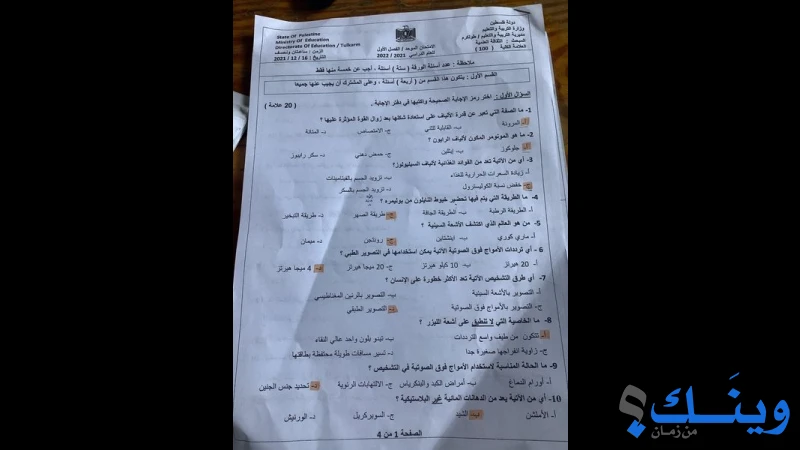 دولة فلسطين
وزارة التربية والتعليم
مديرية التربية والتعليم / طولكرم
المبحث: الثقافة العلمية
العلامة الكلية ( 100 )
الامتحان الموحد / الفصل الأول
للعام الدراسي 2021 / 2022
State Of Palestine
Ministry Of Education
Directorate Of Education / Tulkarm
الزمن: ساعتان ونصف
التاريخ: 16 / 12 / 2021
ملاحظة : عدد أسئلة الورقة ( ستة ) أسئلة ، أجب عن خمسة منها فقط
القسم الأول : يتكون هذا القسم من ( أربعة ) أسئلة ، وعلى المشترك أن يجيب عنها جميعا
السؤال الأول : اختر رمز الإجابة الصحيحة واكتبها في دفتر الإجابة . ( 20 علامة )
1- ما الصفة التي تعبر عن قدرة الألياف على استعادة شكلها بعد زوال القوة المؤثرة عليها ؟
أ- المرونة ب- القابلية للثني ج- الامتصاص د- المتانة
2- ما هو المونومر المكون لألياف الرايون ؟
أ- جلوكوز ب- إيثلين ج- حمض دهني د- سكر رايبوز
3- أي من الآتية تعد من الفوائد الغذائية لألياف السيليلوز؟
أ- زيادة السعرات الحرارية للغذاء ب- تزويد الجسم بالفيتامينات
ج- خفض نسبة الكوليسترول د- تزويد الجسم بالسكر
4- ما الطريقة التي يتم فيها تحضير خيوط النايلون من بوليمره ؟
أ- الطريقة الرطبة ب- الطريقة الجافة ج- طريقة الصهر د- طريقة التبخير
5- من هو العالم الذي اكتشف الأشعة السينية ؟
أ- ماري كوري ب- اينشتاين ج- رونتجن د- ميمان
6 - أي ترددات الأمواج فوق الصوتية الآتية يمكن استخدامها في التصوير الطبي ؟
أ- 20 هيرتز ب- 10 كيلو هيرتز ج- 20 ميجا هيرتز د- 4 ميجا هيرتز
7- أي طرق التشخيص الآتية تعد الأكثر خطورة على الإنسان ؟
أ- التصوير بالأشعة السينية ب- التصوير بالرنين المغناطيسي
ج- التصوير بالأمواج فوق الصوتية د- التصوير الطبقي
8- ما الخاصية التي لا تنطبق على أشعة الليزر ؟
أ- تتكون من طيف واسع للترددات ب- تبدو بلون واحد عالي النقاء
ج- زاوية انفراجها صغيرة جدا د- تسير مسافات طويلة محتفظة بطاقتها
9- ما الحالة المناسبة لاستخدام الأمواج فوق الصوتية في التشخيص ؟
أ- أورام الدماغ ب- أمراض الكبد والبنكرياس ج- الالتهابات الرئوية د- تحديد جنس الجنين
10- أي من الآتية يعد من الدهانات المائية غير البلاستيكية ؟
أ- الأملشن ب- الشيد ج- السوبركريل د- الورنيش
الصفحة 1 من 4
وينك؟
من زمان